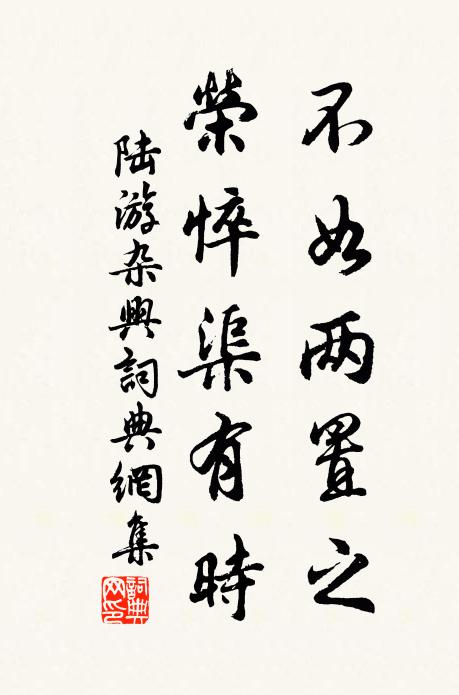 不如两置之
榮悴渠有時
陸游杂興詞典網集
詞典网印